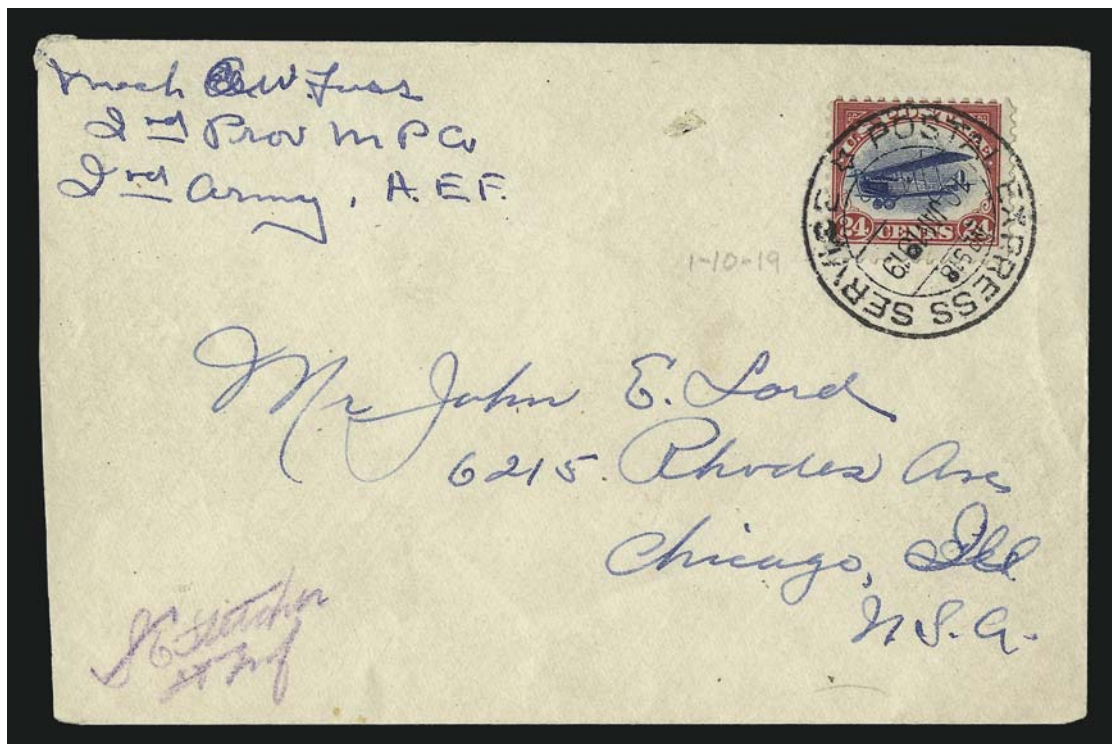 Mech E W Fuss
2nd Prov M P Co
2nd Army, A.E.F.
POSTAL EXPRESS SERVICE
JAN 1919
24 CENTS 24
1-10-19
Mr John E. Lord
6215 Rhodes Ave
Chicago, Ill
U.S.A.
Fletcher